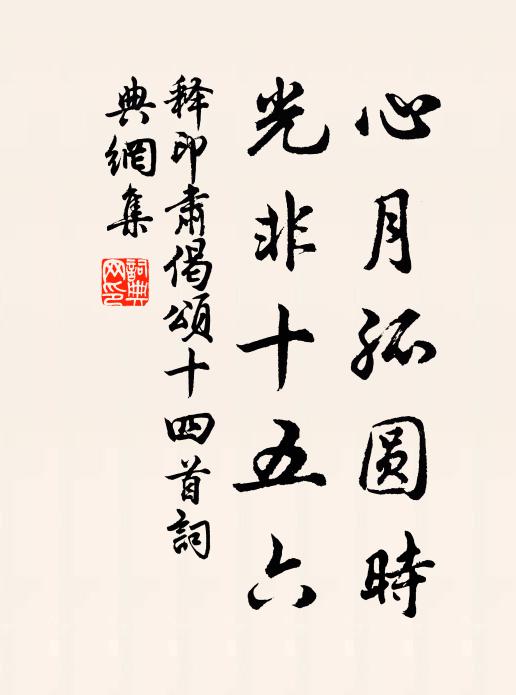 心月孤圆時
光非十五六
释印肃偈頌十四首詞
典網集
詞典
网印